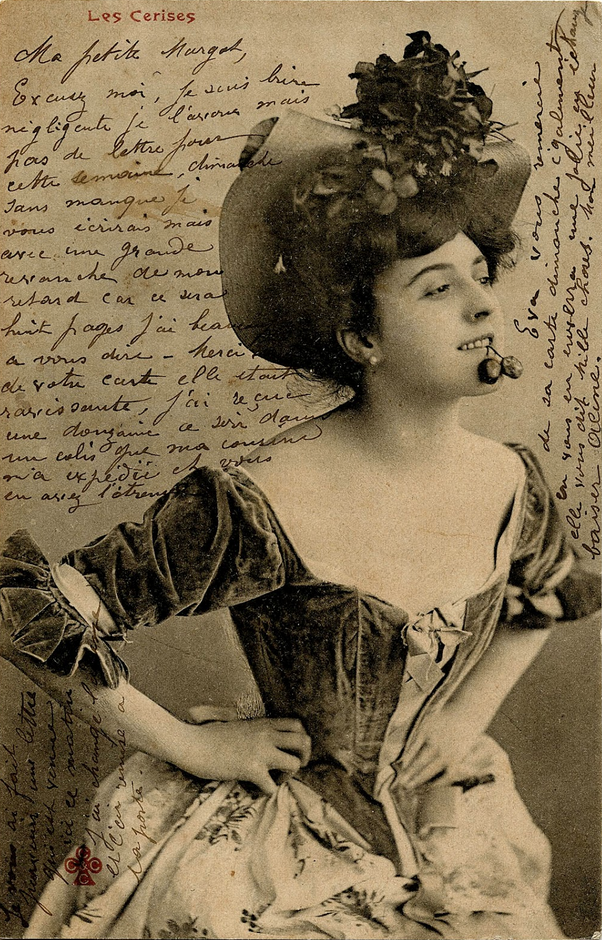 Les Cerises
Ma petite Margot,
Excusez moi, je suis bien
négligente je l'avoue mais
pas de lettre pour
cette semaine, dimanche
sans manque je
vous écrirais mais
avec une grande
revanche de mon
retard car ce sera
huit pages j'ai beaucoup
a vous dire - Merci
de votre carte elle était
ravissante, j'ai reçue
une douzaine ce soir dans
un colis que ma cousine
m'a expédié et vous
en avez l'étrenne
Eva vous remercie
de sa carte dimanche également
vous en enverra une jolie en échange
elle vous dit mille choses. Mon meilleur
baiser
fait
une lettre
qui est venue
ici ce matin
j'ai changé l
et l'ai remise a
la poste.